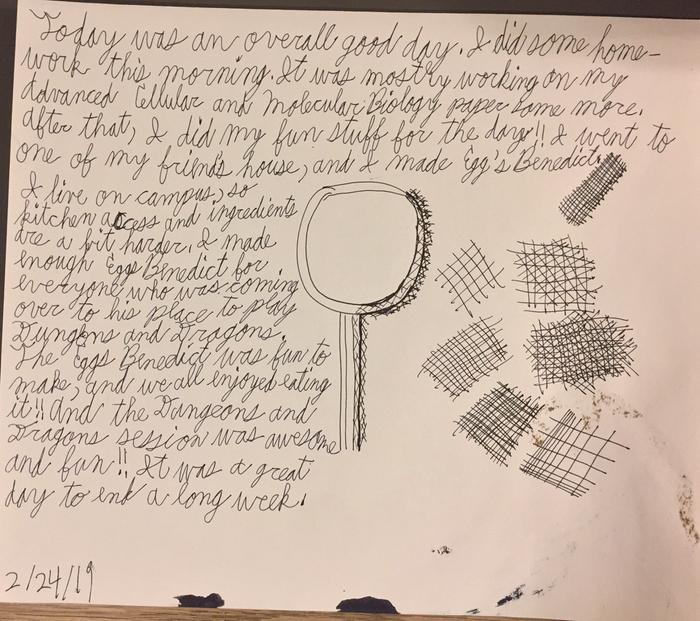 Today was an overall good day. I did some home-
work this morning. It was mostly working on my
Advanced Cellular and Molecular Biology paper some more.
After that, I did my fun stuff for the day!! I went to
one of my friend's house, and I made Egg's Benedict.
I live on campus, so
kitchen access and ingredients
are a bit harder. I made
enough Eggs Benedict for
everyone who was coming
over to his place to play
Dungeons and Dragons.
The Eggs Benedict was fun to
make, and we all enjoyed eating
it!! And the Dungeons and
Dragons session was awesome
and fun!! It was a great
day to end a long week.
2/24/19